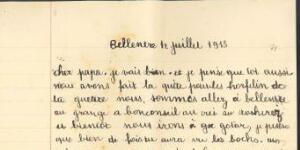 Bellenere 12 juillet 1915
cher papa. je vais bien. et je pense que toi aussi
nous avons fait la quite pour les horfelin de
la guerre nous sommes allez à bellente
au granges a bonconseil au
et bientot nous irons à je
que bien de fois tu aura vu les bochs.